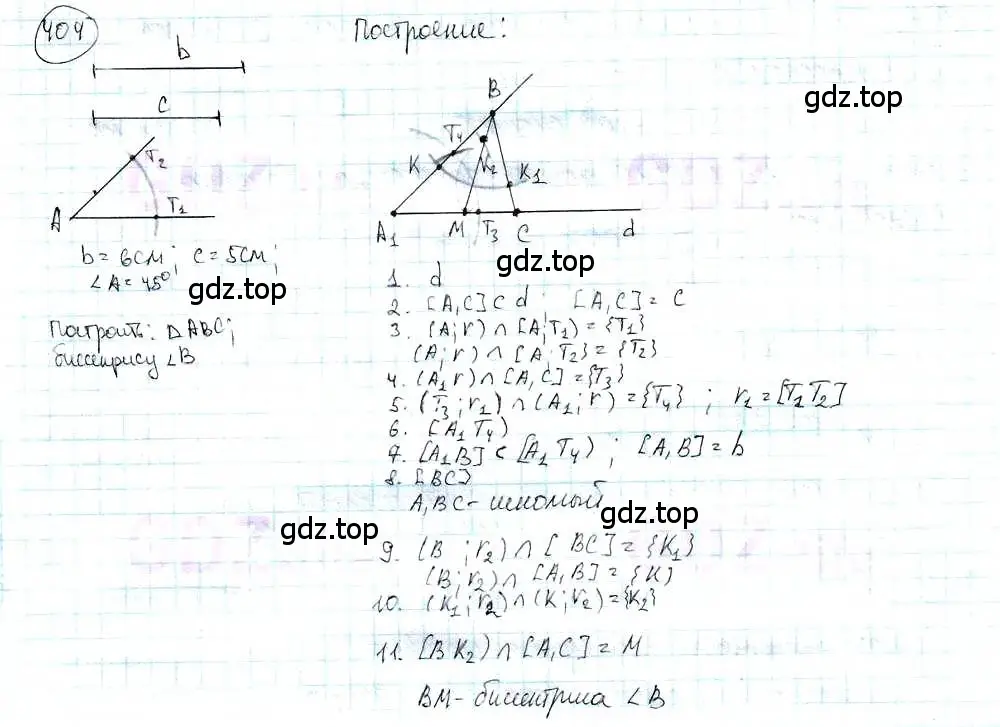 404
b
c
A
T₂
T₁
b = 6см; c = 5см;
∠A = 45°
Построить: △ABC;
биссектрису ∠B
Построение:
gdz.top
B
T₄
K
K₂
K₁
A₁
M
T₃
C
d
gdz.top
gdz.top
1. d
2. [A₁C] ⊂ d; [A₁C] = c
3. (A; r) ∩ [A; T₁) = {T₁}
(A; r) ∩ [A; T₂) = {T₂}
4. (A₁ r) ∩ [A₁C] = {T₃}
5. (T₃; r₁) ∩ (A₁; r) = {T₄} ; r₁ = [T₁T₂]
6. [A₁T₄)
7. [A₁B] ⊂ [A₁T₄) ; [A₁B] = b
8. [BC]
A₁BC - искомый
gdz.top
gdz.top
9. (B; r₂) ∩ [BC] = {K₁}
(B; r₂) ∩ [A₁B] = {K}
10. (K₁; r₂) ∩ (K; r₂) = {K₂}
11. [BK₂) ∩ [A₁C] = M
BM - биссектриса ∠B